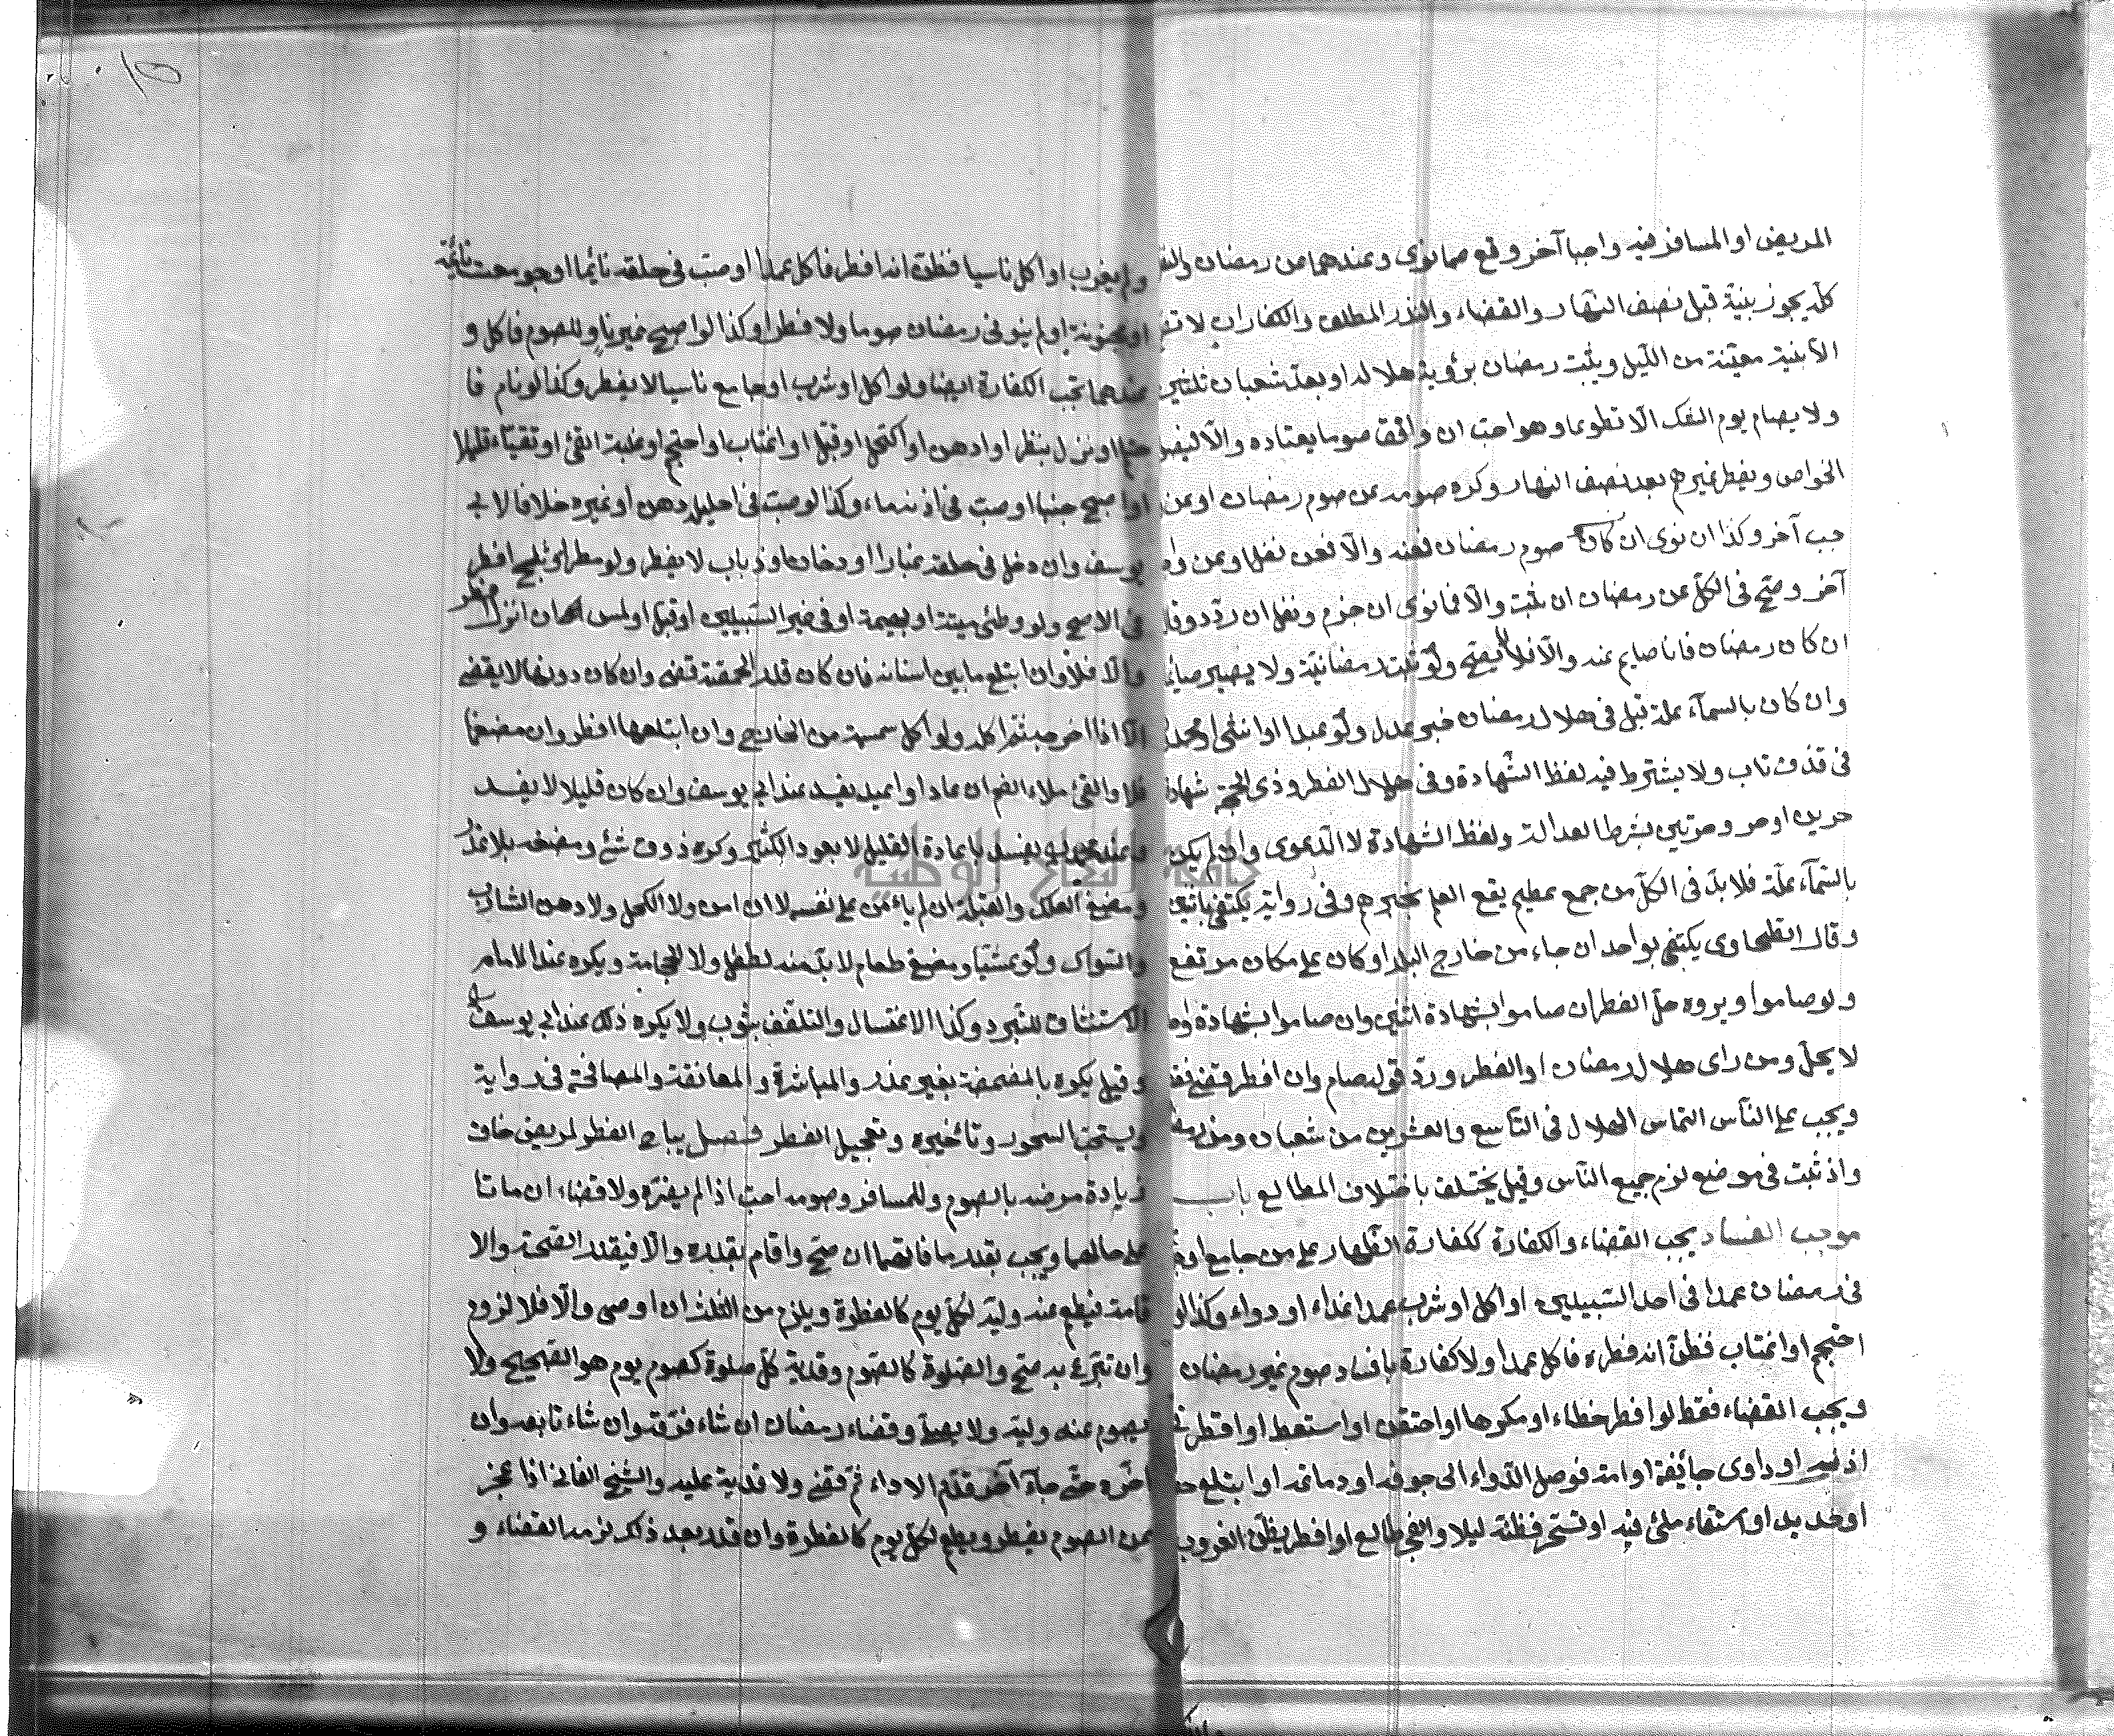 المريض او المسافر فيه واجبا آخر وقع عما نوى وعندهما عن رمضان والنفل
كله يجوز بنية قبل نصف النهار والقضاء والنذر المطلق والكفارات لا تصح
الا بنية معينة من الليل ويثبت رمضان برؤية هلاله او بعد شعبان ثلثين
ولا يصام يوم الشك الا تطوعا وهو احب ان وافق صوما يعتاده والا فيصوم
الخواص ويفطر غيرهم بعد نصف النهار وكره صومه عن صوم رمضان او عن وا
جب آخر وكذا ان نوى ان كان صوم رمضان فعنه والا فعن نفل او عن واجب
آخر وصح فى الكل عن رمضان ان ثبت والا فما نوى ان جزم ونفل ان ردد وقال
ان كان رمضان فانا صايم عنه والا فلا لا يصح ولو ثبت رمضانية ولا يصير صائما
وان كان بالسماء علة قبل فى هلال رمضان خبر عدل ولو عبدا او انثى او محدودا
فى قذف تاب ولا يشترط فيه لفظ الشهادة وفى هلال الفطر وذى الحجة شهادة
حرين او حر وحرتين بشرط العدالة ولفظ الشهادة لا الدعوى وان لم يكن
بالسماء علة فلا بد فى الكل من جمع عظيم يقع العلم بخبرهم وفى رواية يكتفى باثنين
وقال الطحاوى يكتفى بواحد ان جاء من خارج البلد او كان على مكان مرتفع
ولو صاموا ويروه حل الفطر ان صاموا بشهادة اثنين وان صاموا بشهادة واحد
لا يحل ومن راى هلال رمضان او الفطر ورد قوله صام وان افطر قضى فقط
ويجب على الناس التماس الهلال فى التاسع والعشرين من شعبان ومن رمضان
واذ ثبت فى موضع لزم جميع الناس وقيل يختلف باختلاف المطالع باب
موجب الفساد يجب القضاء والكفارة ككفارة الظهار على من جامع او جومع
فى رمضان عمدا فى احد السبيلين او اكل او شرب عمدا غذاء او دواء وكذا لو
احتجم او اغتاب فظن انه فطره فاكل عمدا ولا كفارة بافساد صوم غير رمضان
ويجب القضاء فقط لو افطر خطاء او مكرها او احتقن او استعط او اقطر فى
اذنيه او داوى جائفة او امة فوصل الدواء الى جوفه او دماغه او ابتلع حصاة
او حديد او استقاء ملئ فيه او تسحر فظنه ليلا والفجر طالع او افطر يظن الغروب
ولم يغرب او اكل ناسيا فظن انه افطر فاكل عمدا او صب فى حلقه نائما او جومعت نائمة
او مجنونة او لم ينو فى رمضان صوما ولا فطرا وكذا لو اصبح غير ناو للصوم فاكل و
عندهما تجب الكفارة ايضا ولو اكل او شرب او جامع ناسيا لا يفطر وكذا لو نام فا
حتلم او نزل بنظر او ادهن او اكتحل او قبل او اغتاب او احتجم او غلبه القئ او تقياء قليلا
او اصبح جنبا او صب فى اذنه ماء وكذا لو صب فى احليله دهن او غيره خلافا لابى
يوسف وان دخل فى حلقه غبارا او دخان او ذباب لا يفطر ولو مطر او ثلج افطر
فى الاصح ولو وطئ ميتة او بهيمة او فى غير السبيلين او قبل او لمس ان انزل افطر
والا فلا وان ابتلع ما بين اسنانه فان كان قدر الحمصة قضى وان كان دونها لا يقضى
الا اذا اخرجه ثم اكله ولو اكل سمسمة من الخارج وان ابتلعها افطر وان مضغها
فلا والقئ ملاء الفم ان عاد او اعيد يفسد عند ابى يوسف وان كان قليلا لا يفسد
وعند محمد يفسد باعادة القليل لا بعود الكثير وكره ذوق شئ ومضغه بلا عذر
ومضغ العلك والقبلة ان لم ياءمن على نفسه لا ان امن ولا الكحل ولا دهن الشارب
والسواك ولو عشيا ومضغ طعام لا بد منه لطفل ولا الحجامة ويكره عند الامام
الاستنشاق للتبرد وكذا الاغتسال والتلفف بثوب ولا يكره ذلك عند ابى يوسف
وقيل يكره بالمضمضة بغير عذر والمباشرة والمعانقة والمصافحة فى رواية
ويستحب السحور وتأخيره وتعجيل الفطر فصل يباح الفطر لمريض خاف
زيادة مرضه بالصوم وللمسافر وصومه احب اذا لم يضره ولا قضاء ان ماتا
على حالهما ويجب بقدر ما فاتهما ان صح واقام بقدره والا فبقدر الصحة والا
قامة فيطعم عنه وليه لكل يوم كالفطرة ويلزم من الثلث ان اوصى والا فلا لزوم
وان تبرع به صح والصلوة كالصوم وفدية كل صلوة كصوم يوم هو الصحيح ولا
يصوم عنه وليه ولا يصلى وقضاء رمضان ان شاء فرقه وان شاء تابعه وان
اخره حتى جاء آخر قدم الاداء ثم قضى ولا فدية عليه والشيخ الفانى اذا عجز
عن الصوم يفطر ويطعم لكل يوم كالفطرة وان قدر بعد ذلك لزمه القضاء و